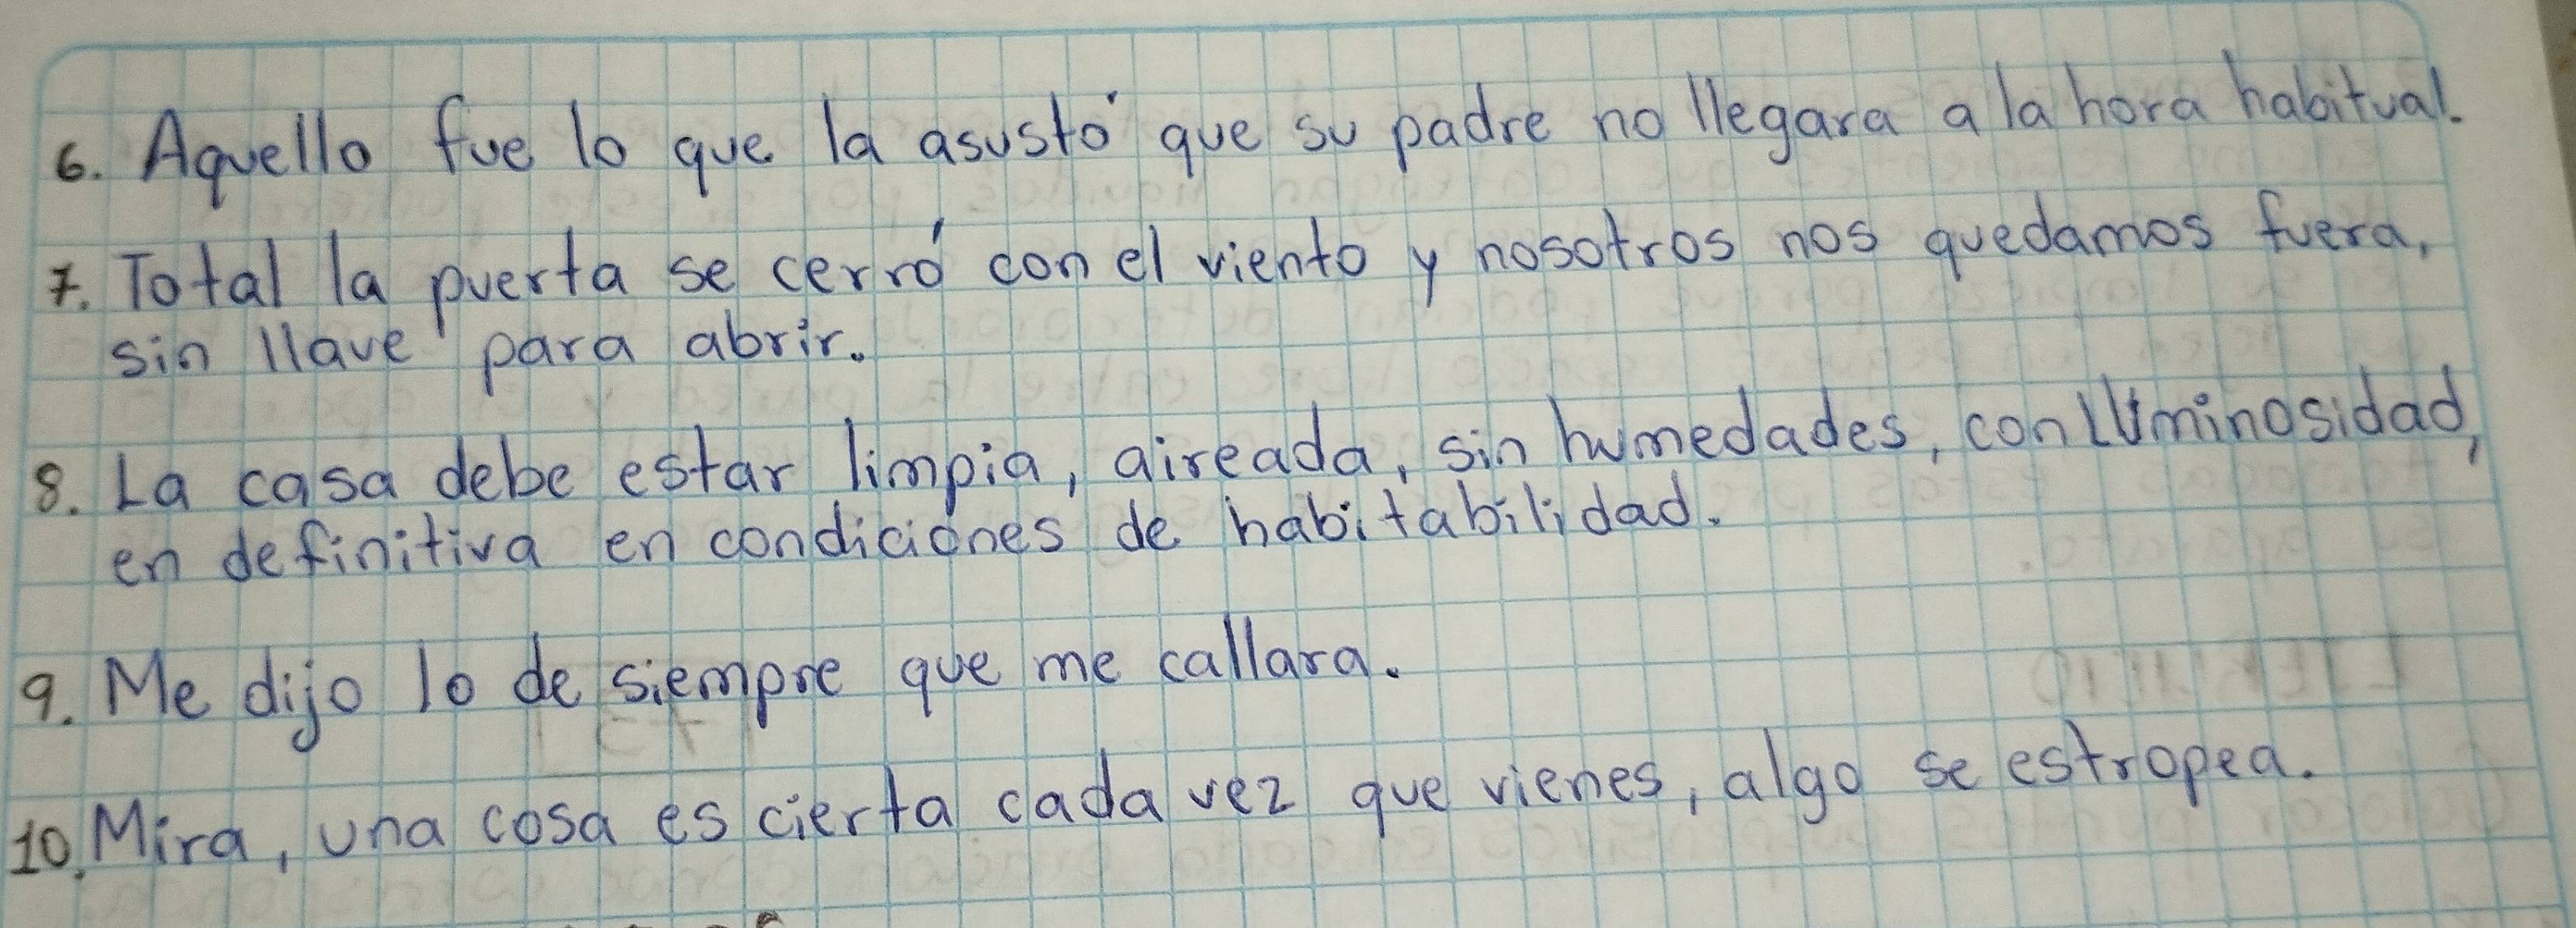 6. Aquello fue lo que la asustó que su padre no llegara a la hora habitual.
7. Total la puerta se cerró con el viento y nosotros nos quedamos fuera,
sin llave para abrir.
8. La casa debe estar limpia, aireada, sin humedades, con luminosidad,
en definitiva en condiciones de habitabilidad.
9. Me dijo lo de siempre que me callara.
10. Mira, una cosa es cierta cada vez que vienes, algo se estropea.